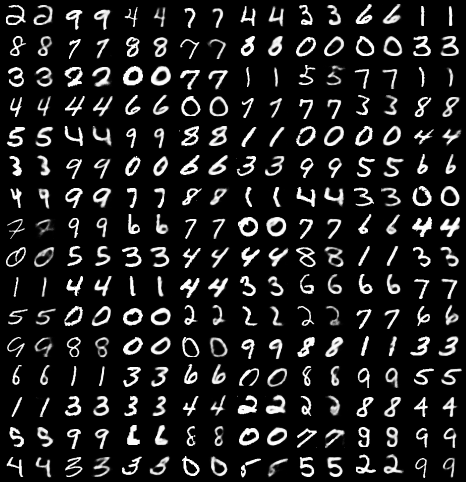 2 2 9 9 4 4 7 7 4 4 3 3 6 6 1 1
8 8 7 7 8 8 7 7 8 8 0 0 0 0 3 3
3 3 2 2 0 0 7 7 1 1 5 5 7 7 1 1
4 4 4 4 6 6 0 0 1 1 7 7 3 3 8 8
5 5 4 4 9 9 8 8 1 1 0 0 0 0 4 4
3 3 9 9 0 0 6 6 3 3 9 9 5 5 6 6
9 9 9 9 7 7 8 8 1 1 4 4 3 3 0 0
7 7 9 9 6 6 7 7 0 0 7 7 6 6 4 4
0 0 5 5 3 3 4 4 4 4 8 8 1 1 3 3
1 1 4 4 1 1 4 4 3 3 6 6 6 6 7 7
5 5 0 0 0 0 2 2 2 2 2 2 7 7 6 6
9 9 8 8 0 0 0 0 9 9 8 8 1 1 3 3
6 6 1 1 3 3 6 6 0 0 8 8 9 9 5 5
1 1 3 3 3 3 4 4 2 2 2 2 8 8 4 4
5 5 9 9 6 6 8 8 0 0 7 7 9 9 9 9
4 4 3 3 3 3 0 0 5 5 5 5 2 2 9 9